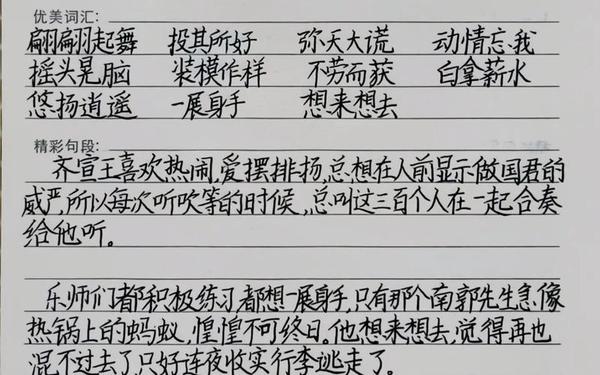 优美词汇:
翩翩起舞 投其所好 弥天大谎 动情忘我
摇头晃脑 装模作样 不劳而获 白拿薪水
悠扬逍遥 一展身手 想来想去
精彩句段:
齐宣王喜欢热闹,爱摆排扬,总想在人前显示做国君的
威严,所以每次听吹等的时候,总叫这三百个人在一起合奏
给他听。
乐师们都积极练习都想一展身手,只有那个南郭先生急像
热锅上的蚂蚁,惶惶不可终日。他想来想去,觉得再也
混不过去了,只好连夜收实行李逃走了。